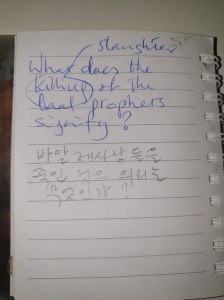 slaughter
What does the
killing of the
Baal prophets
signify?
바알 제사장들을
죽인 것의 의미는
무엇인가?